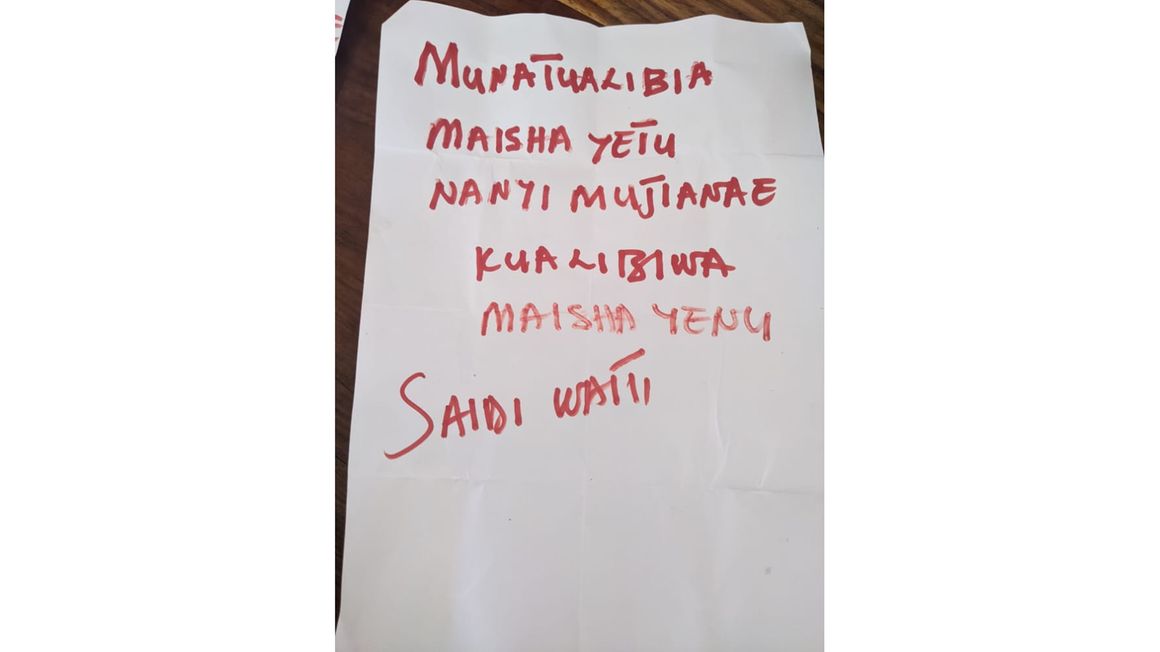 MUNATUALIBIA
MAISHA YETU
NANYI MUJIANAE
KUALIBIWA
MAISHA YENU
SAIDI WATII